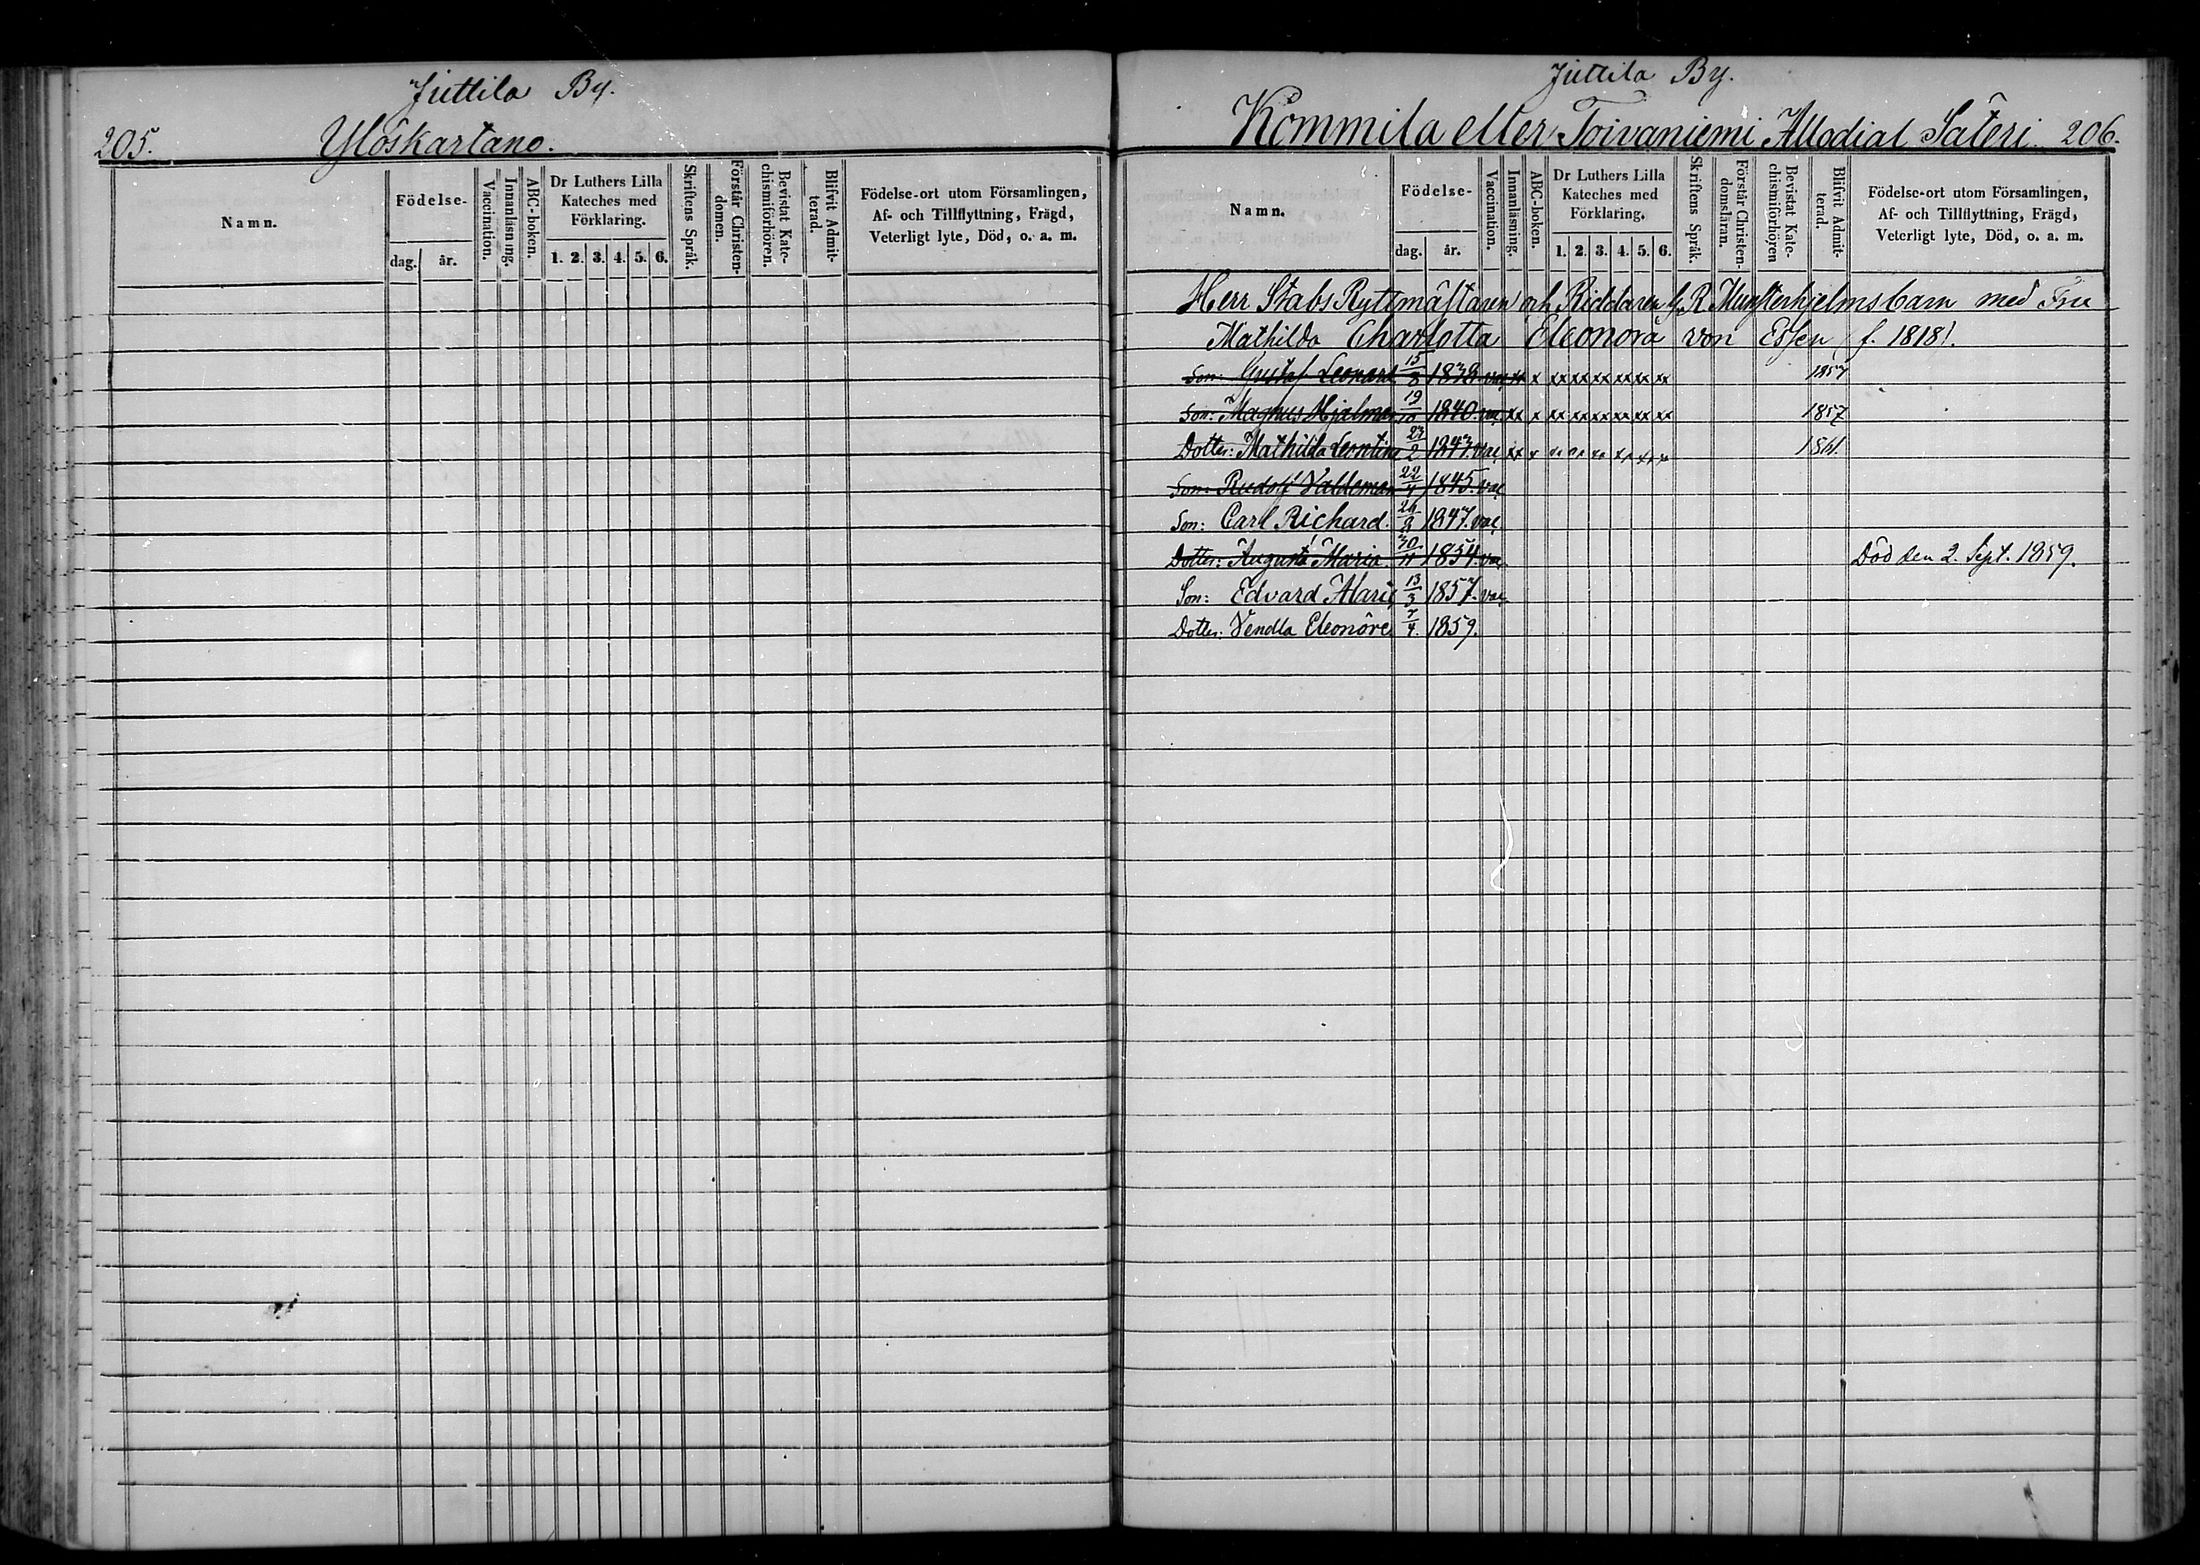 Juttila By.
205. Yloskartano.
Namn.
Födelse-
dag. år.
Vaccination.
Innanläsning.
ABC-boken.
Dr Luthers Lilla Kateches med Förklaring.
1. 2. 3. 4. 5. 6.
Skriftens Språk.
Förstår Christen-domen.
Bevistat Kate-chismiförhören.
Blifvit Admit-terad.
Födelse-ort utom Församlingen,
Af- och Tillflyttning, Frägd,
Veterligt lyte, Död, o. a. m.
Juttila By.
Kommila eller Toivaniemi Allodial Säteri. 206.
Namn.
Födelse-
dag. år.
Vaccination.
Innanläsning.
ABC-boken.
Dr Luthers Lilla Kateches med Förklaring.
1. 2. 3. 4. 5. 6.
Skriftens Språk.
Förstår Christen-domsläran.
Bevistat Kate-chismiförhören
Blifvit Admit-terad.
Födelse-ort utom Församlingen,
Af- och Tillflyttning, Frägd,
Veterligt lyte, Död, o. a. m.
Herr Stabs Ryttmästaren och Riddaren G. R. Munsterhjelms barn med Fru
Mathilda Charlotta Eleonora von Essen f. 1818).
Son: Gustaf Leonard 15/8 1838. vac xx x xx xx xx xx xx xx 1857
Son: Magnus Hjalmar 19/10 1840. vac xx x xx xx xx xx xx xx 1857
Dotter: Mathilda Leontina 23/2 1843. vac xx x xx xx xx xx xx xx 1861.
Son: Rudolf Valdemar 22/4 1845. vac
Son: Carl Richard. 24/8 1847. vac
Dotter: Augusta Maria. 30/11 1854. vac Död den 2. Sept. 1859.
Son: Edvard Alaric 13/3 1857. vac
Dotter: Vendla Eleonöre 7/4. 1859.